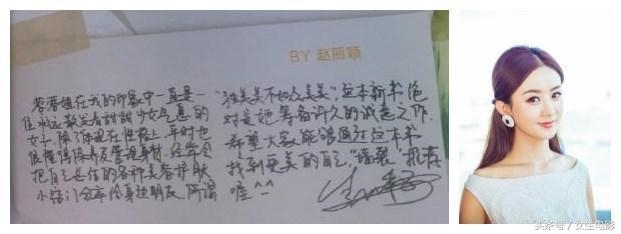 BY 赵丽颖
蓉蓉姐在我的印象中一直是一
位永远散发着甜甜少女气息的
女子,除了体现在性格上,平时也
很懂得保养及管理身材,经常会
把自己的各种美容护肤
小窍门分享给身边朋友,所谓
“独美美不如众美美”这本新书,绝
对是她筹备许久的诚意之作,
希望大家能够通过这本书
找到更美的自己,“墙裂”推荐
喔^^
头条号 / 女生电影